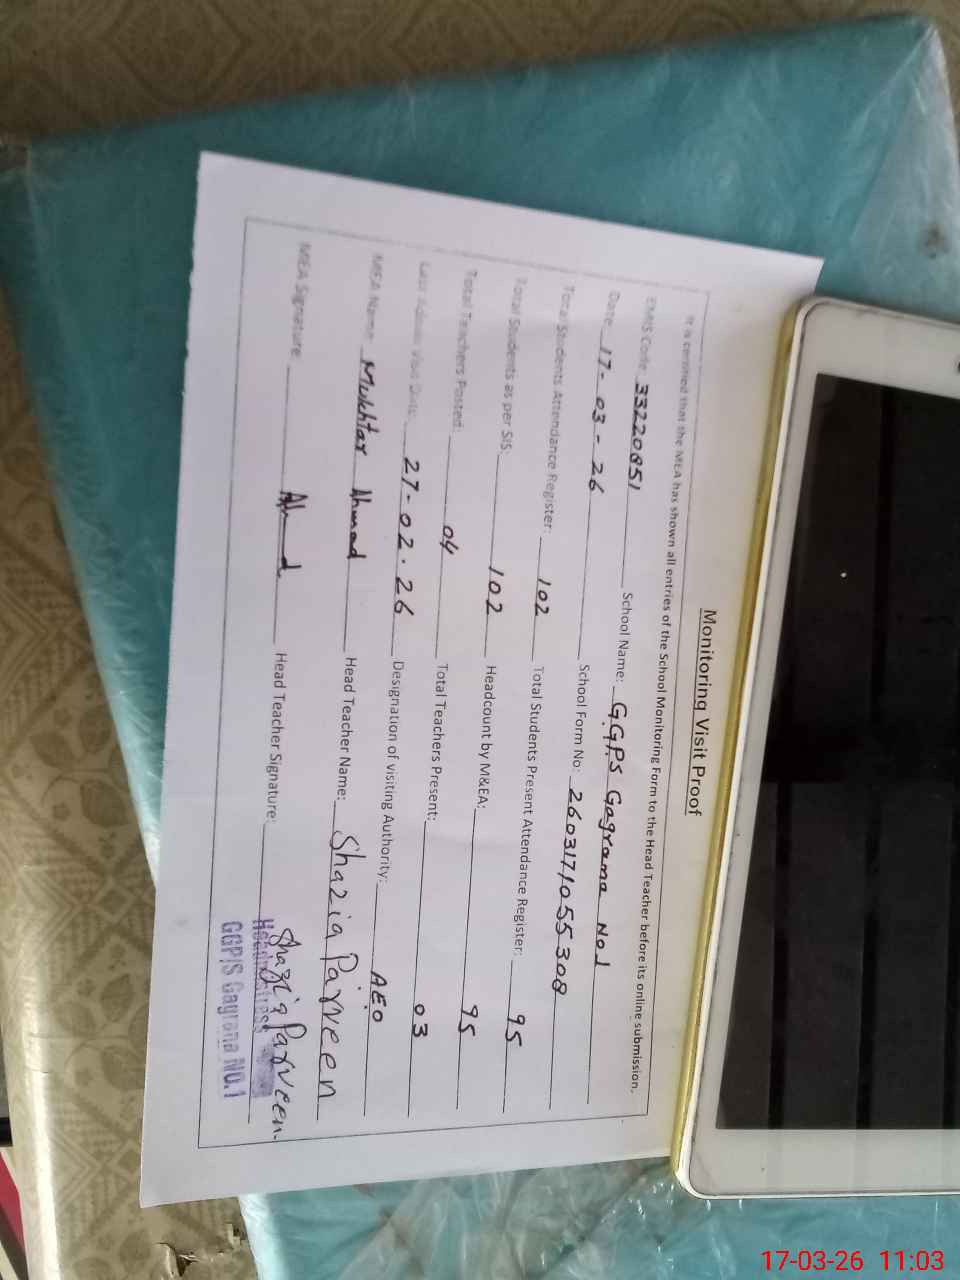 Monitoring Visit Proof
It is certified that the MEA has shown all entries of the School Monitoring Form to the Head Teacher before its online submission.
EMIS Code: 33220851 School Name: G.G.P.S Gagrana No.1
Date: 17-03-26 School Form No: 2603171055308
Total Students Attendance Register: 102 Total Students Present Attendance Register: 95
Total Students as per SIS: 102 Headcount by M&EA: 95
Total Teachers Posted: 04 Total Teachers Present: 03
Last Visit Date: 27-02-26 Designation of visiting Authority: AEO
MEA Name: Mukhtar Ahmad Head Teacher Name: Shazia Parveen
MEA Signature: Head Teacher Signature: Shazia Parveen
Headmistress
GGP/S Gagrana NO.1
17-03-26 11:03